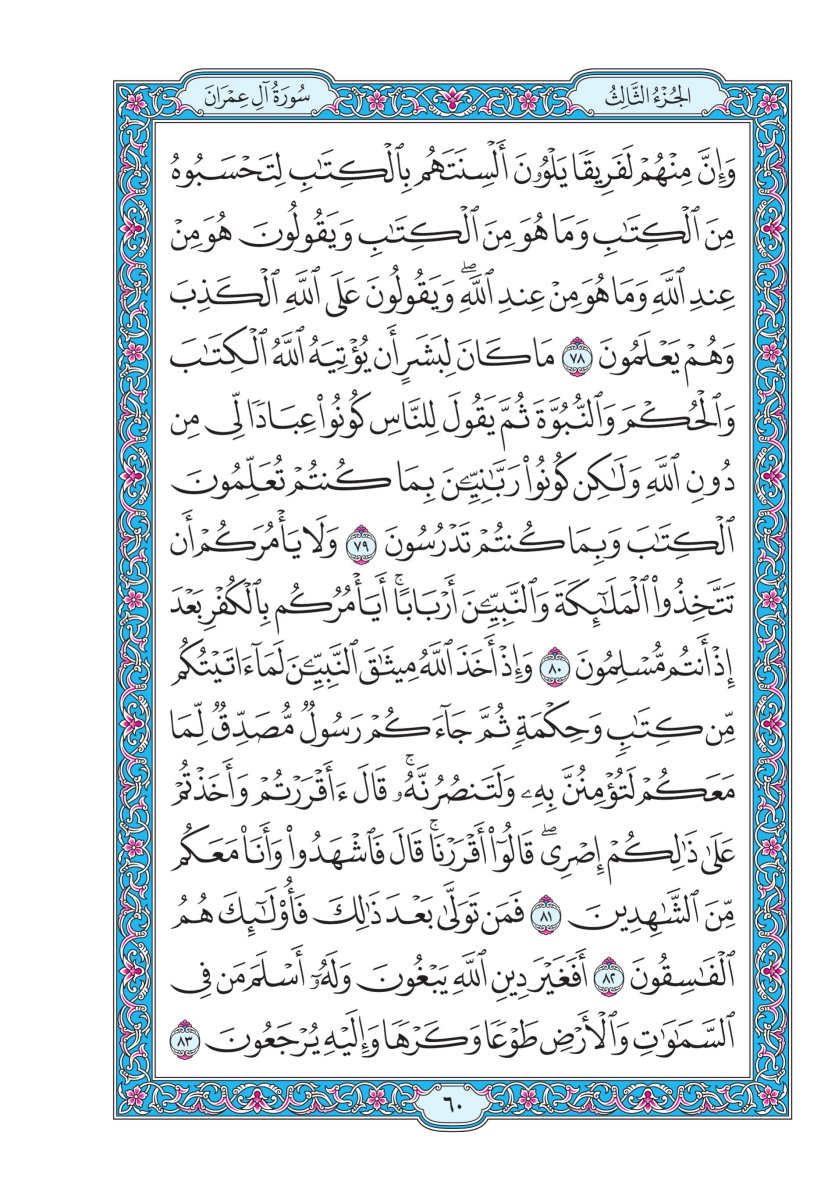 الجُزْءُ الثَّالِثُ
سُورَةُ آلِ عِمْرَانَ
وَإِنَّ مِنْهُمْ لَفَرِيقًا يَلْوُۥنَ أَلْسِنَتَهُم بِٱلْكِتَٰبِ لِتَحْسَبُوهُ
مِنَ ٱلْكِتَٰبِ وَمَا هُوَ مِنَ ٱلْكِتَٰبِ وَيَقُولُونَ هُوَ مِنْ
عِندِ ٱللَّهِ وَمَا هُوَ مِنْ عِندِ ٱللَّهِۖ وَيَقُولُونَ عَلَى ٱللَّهِ ٱلْكَذِبَ
وَهُمْ يَعْلَمُونَ ٧٨ مَا كَانَ لِبَشَرٍ أَن يُؤْتِيَهُ ٱللَّهُ ٱلْكِتَٰبَ
وَٱلْحُكْمَ وَٱلنُّبُوَّةَ ثُمَّ يَقُولَ لِلنَّاسِ كُونُوا۟ عِبَادًا لِّى مِن
دُونِ ٱللَّهِ وَلَٰكِن كُونُوا۟ رَبَّٰنِيِّۦنَ بِمَا كُنتُمْ تُعَلِّمُونَ
ٱلْكِتَٰبَ وَبِمَا كُنتُمْ تَدْرُسُونَ ٧٩ وَلَا يَأْمُرَكُمْ أَن
تَتَّخِذُوا۟ ٱلْمَلَٰٓئِكَةَ وَٱلنَّبِيِّۦنَ أَرْبَابًاۚ أَيَأْمُرُكُم بِٱلْكُفْرِ بَعْدَ
إِذْ أَنتُم مُّسْلِمُونَ ٨٠ وَإِذْ أَخَذَ ٱللَّهُ مِيثَٰقَ ٱلنَّبِيِّۦنَ لَمَآ ءَاتَيْتُكُم
مِّن كِتَٰبٍ وَحِكْمَةٍ ثُمَّ جَآءَكُمْ رَسُولٌ مُّصَدِّقٌ لِّمَا
مَعَكُمْ لَتُؤْمِنُنَّ بِهِۦ وَلَتَنصُرُنَّهُۥۚ قَالَ ءَأَقْرَرْتُمْ وَأَخَذْتُمْ
عَلَىٰ ذَٰلِكُمْ إِصْرِىۖ قَالُوٓا۟ أَقْرَرْنَاۚ قَالَ فَٱشْهَدُوا۟ وَأَنَا۠ مَعَكُم
مِّنَ ٱلشَّٰهِدِينَ ٨١ فَمَن تَوَلَّىٰ بَعْدَ ذَٰلِكَ فَأُو۟لَٰٓئِكَ هُمُ
ٱلْفَٰسِقُونَ ٨٢ أَفَغَيْرَ دِينِ ٱللَّهِ يَبْغُونَ وَلَهُۥٓ أَسْلَمَ مَن فِى
ٱلسَّمَٰوَٰتِ وَٱلْأَرْضِ طَوْعًا وَكَرْهًا وَإِلَيْهِ يُرْجَعُونَ ٨٣
٦٠